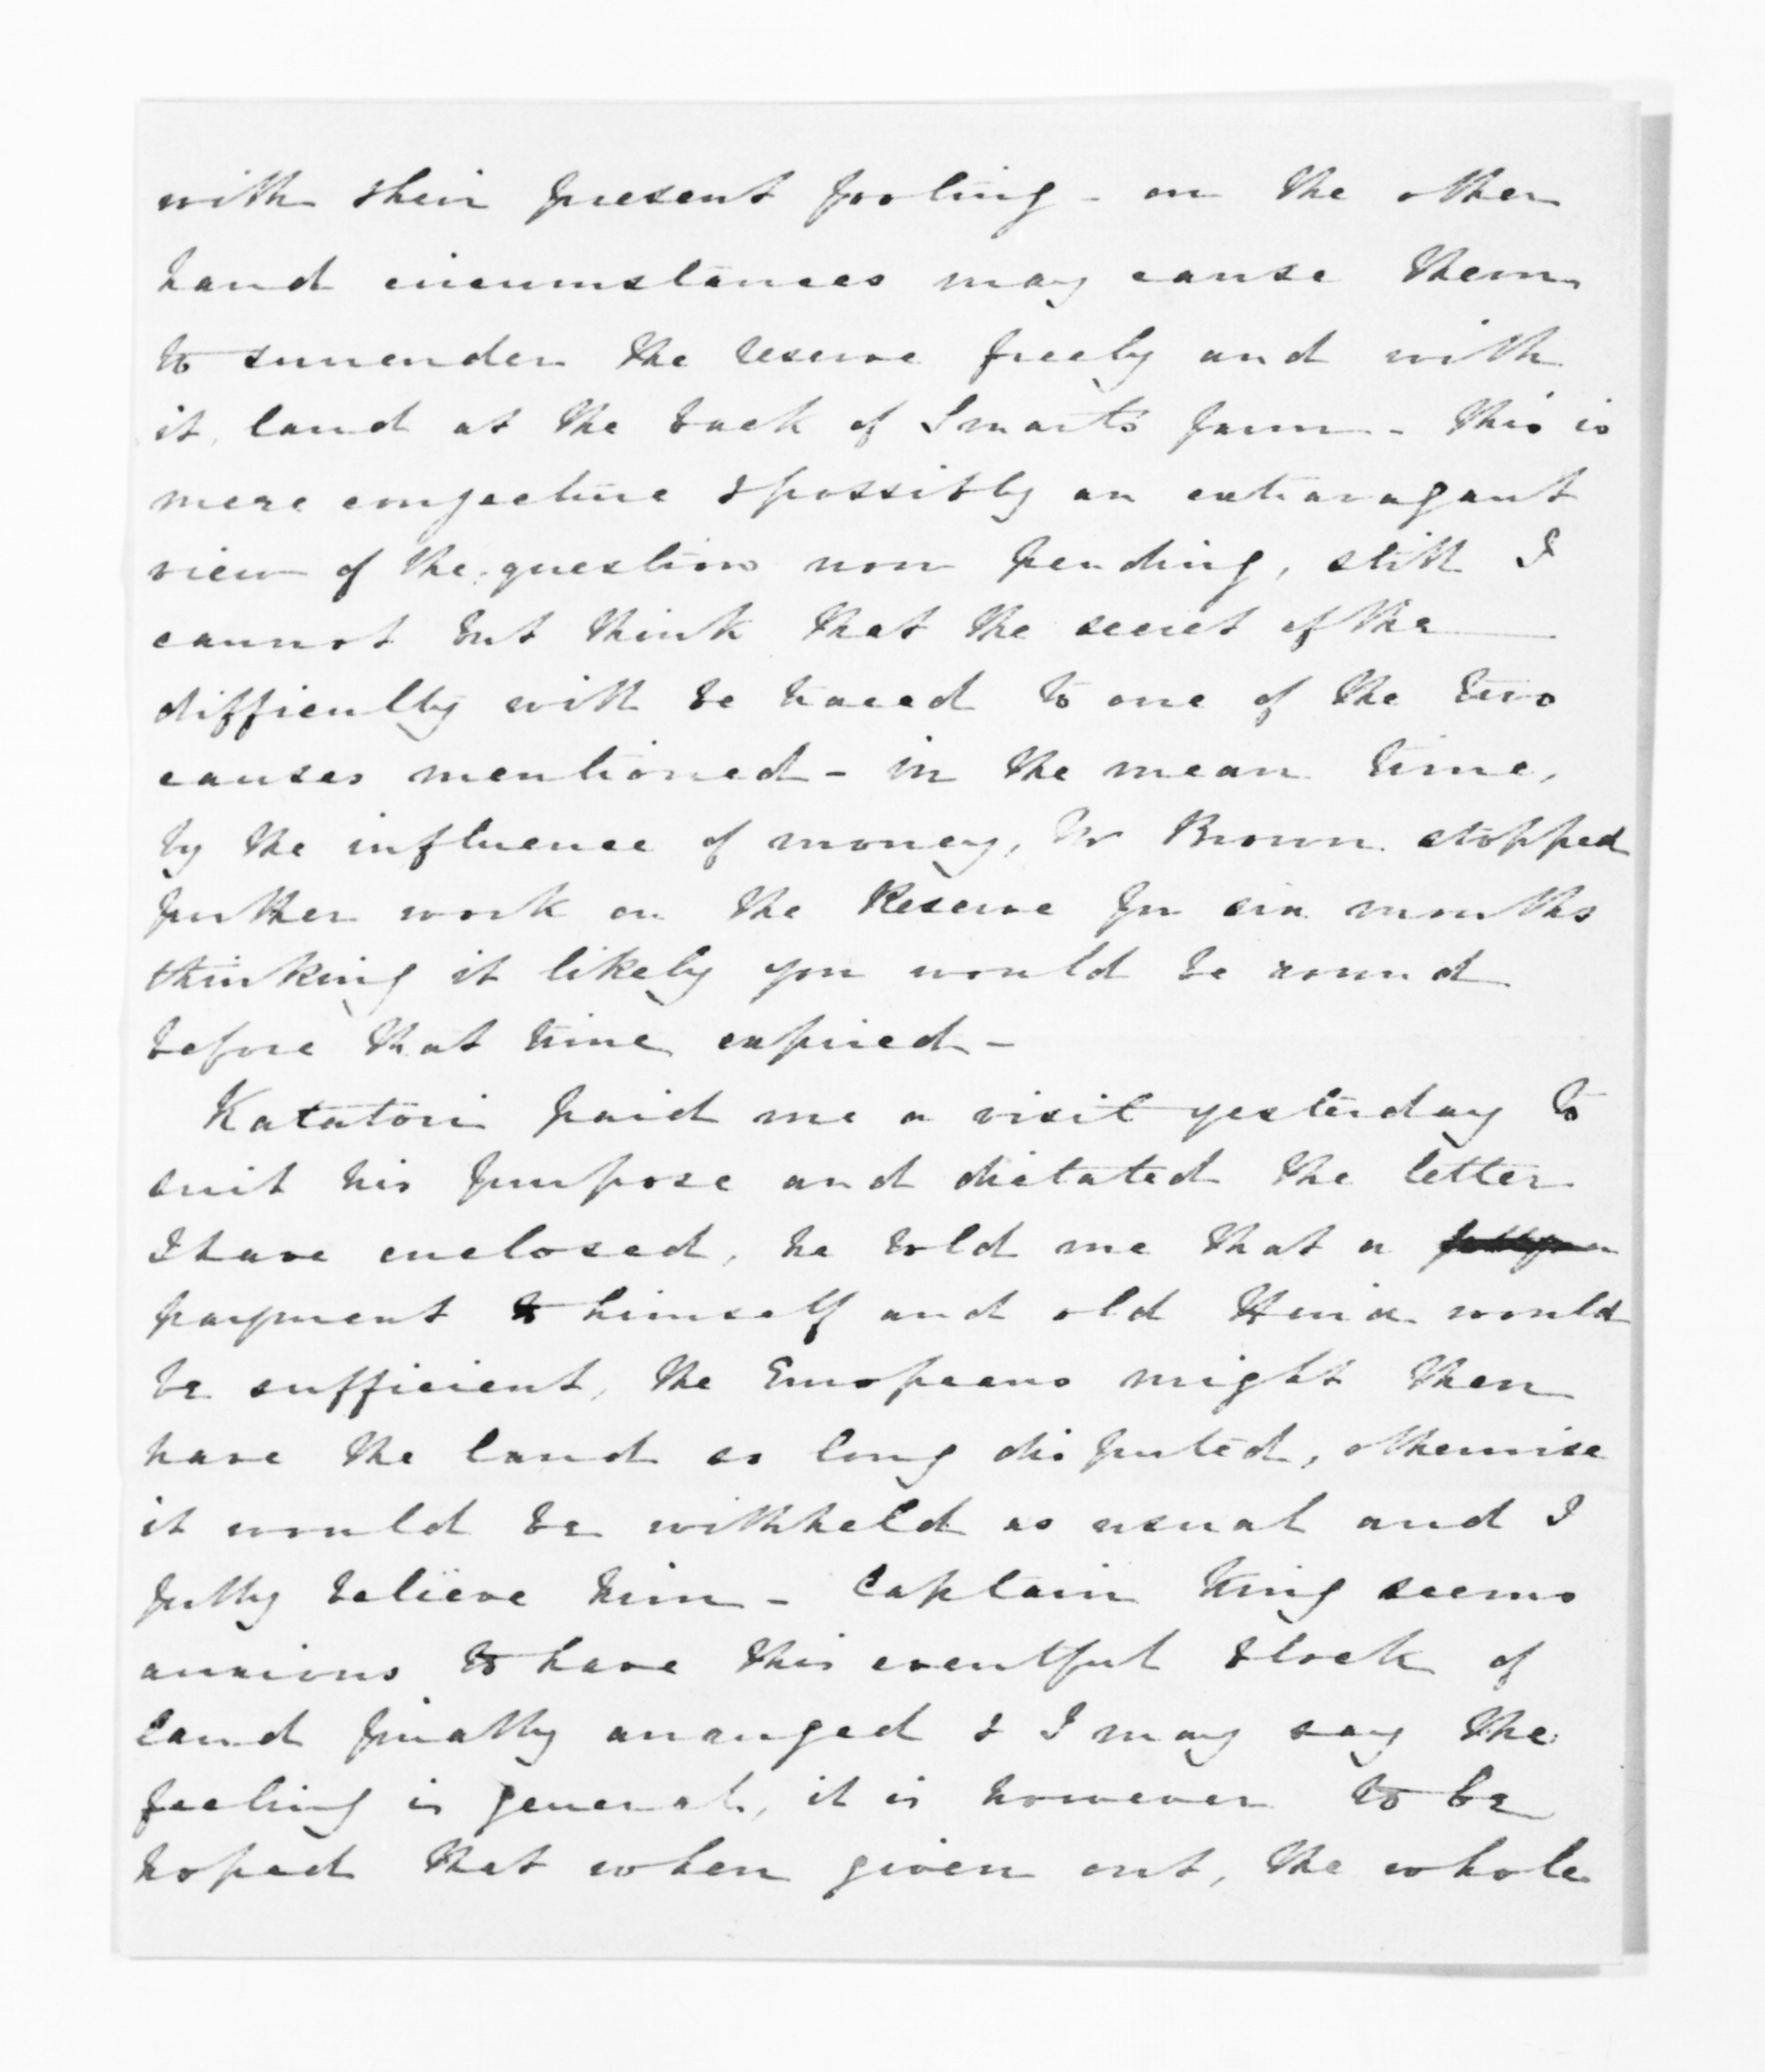 with their present footing - on the other
hand circumstances may cause them
to surrender the reserve freely and with
it, land at the back of Smarts farm - this is
mere conjecture & possibly an extravagant
view of the question now pending, still I
cannot but think that the secret of the
difficulty will be traced to one of the two
causes mentioned - in the mean time,
by the influence of money, Mr Brown stopped
further work on the Reserve for six months
thinking it likely you would be round
before that time expired -
Katatori paid me a visit yesterday to
suit his purpose and dictated the letter
I have enclosed, he told me that a
payment to himself and old would
be sufficient, the Europeans might then
have the land so long disputed, otherwise
it would be withheld as usual and I
fully believe him - Captain King seems
anxious to have this eventful block of
land finally arranged & I may say the
feeling is general, it is however to be
hoped that when given out, the whole